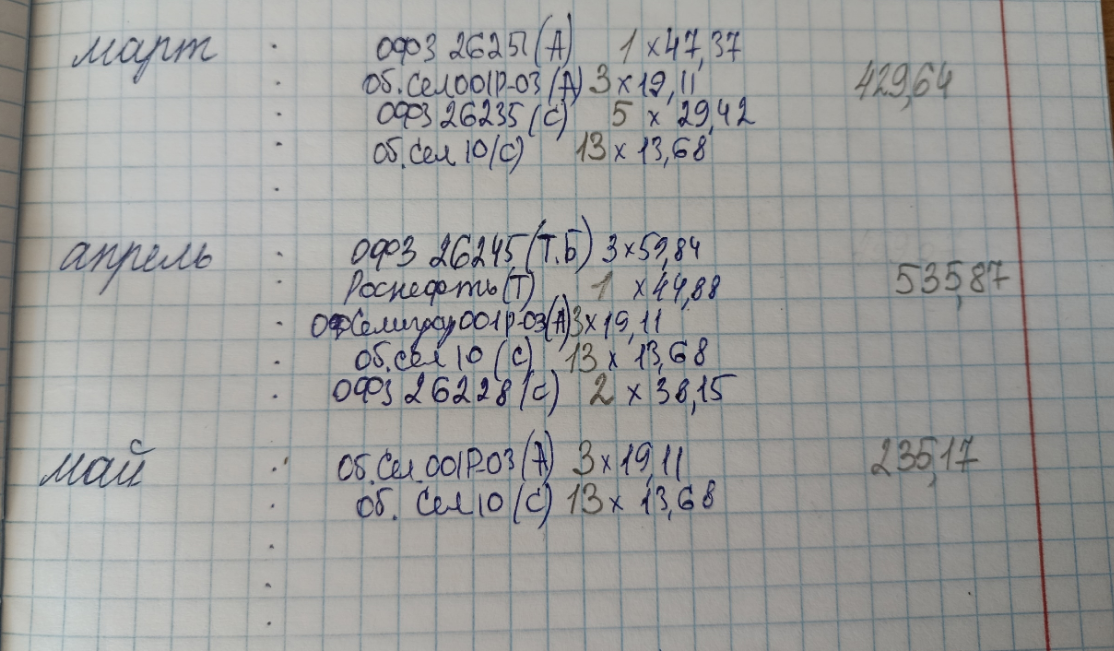 март . ОФЗ 26251 (А) 1 × 47,37
. Об. Сел 001Р-03 (А) 3 × 19,11 429,64
. ОФЗ 26235 (С) 5 × 29,42
. Об. Сел 10 (С) 13 × 13,68
.
апрель . ОФЗ 26245 (Т.Б) 3 × 59,84
. Роснефть (Т) 1 × 44,88 535,87
. Селигдар 001Р-03 (А) 3 × 19,11
. Об. сел 10 (С) 13 × 13,68
. ОФЗ 26228 (С) 2 × 38,15
май . Об. Сел. 001Р-03 (А) 3 × 19,11 235,17
. Об. Сел 10 (С) 13 × 13,68
.
.
.